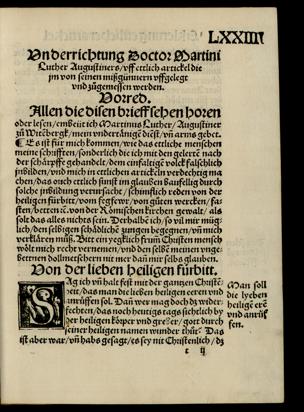 LXXIIII
Vnderrichtung Doctor Martini
Luther Augustiners/vff ettlich artickel die
jm von seinen mißgünnern vffgelegt
vnd zůgemessen werden.
Vorred.
Allen die disen brieff sehen horen
oder lesen/embeüt ich Martinus Luther/Augustiner
zů Witēbergk/mein vndertänige diēst/vñ arms gebet.
Es ist für mich kommen/wie das ettliche menschen
meine schrifften/sonderlich die ich mit den gelertē nach
der schärpffe gehandelt/dem einfaltigē volck fälschlich
jnbilden/vnd mich in ettlichen artickeln verdechtig ma
chen/das auch ettlich sunst im glauben baufellig durch
solche jnbildung verursacht/schimflich reden von der
heiligen fürbitt/vom fegfewr/von gůten wercken/fa
sten/betten ꝛc. von der Römischen kirchen gewalt/als
solt das alles nichts sein. Derhalbē ich/so vil mir müg
lich/den selbigen schädliche zungen begegnen/vñ mich
verklären můß. Bitt ein yegklich frum̃ Christen mensch
wölt mich recht vernemen/vnd den selbē meinen vnge
bettnen dollmetschern nit mer dañ mir selbs glauben.
Von der lieben heiligen fürbitt.
SAg ich vñ halt fest mit der gantzen Christē
heit/das man die lieben heiligen eeren vnd
anrüffen sol. Dañ wer mag doch dz wider
fechten/das noch heutigs tags sichlich by
der heiligen körper vnd greber/gott durch
seiner heiligen namen wunder thůt: Das
ist aber war/vñ habs gesagt/es sey nit Christenlich/dz
Man soll
die lyeben
heilige erē
vnd anrůf
fen.
c ij